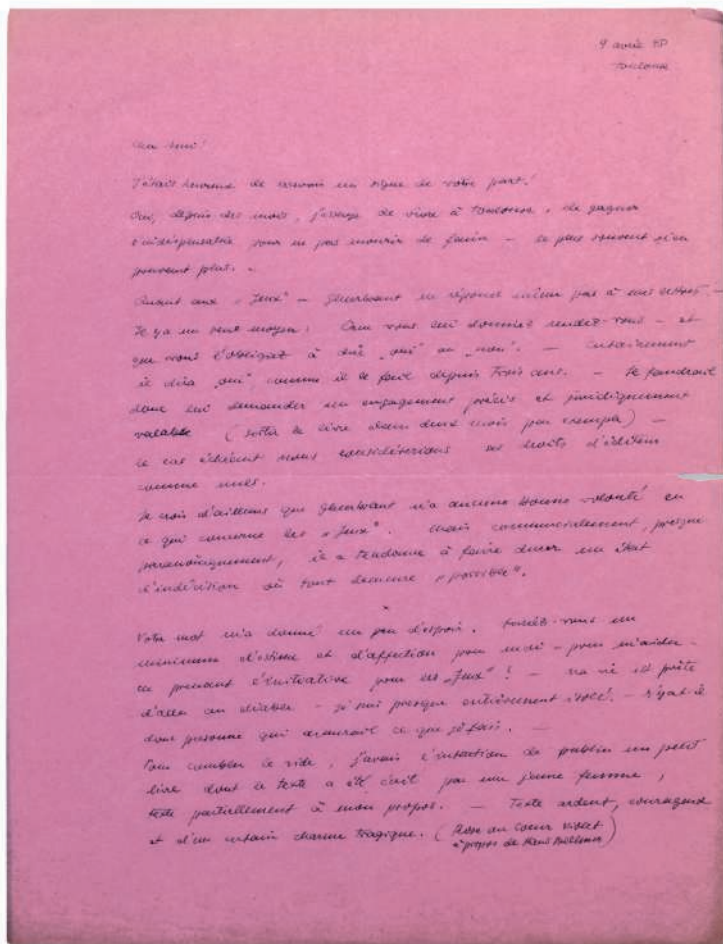 Toulouse
J'étais heureux de recevoir un signe de votre part!
Oui, depuis des mois, j'essaye de vivre à Toulouse, de gagner
l'indispensable pour ne pas mourir de faim – le plus souvent n'en
pouvant plus. –
Quant aux "Jeux" – ne répond même pas à mes lettres. –
Il y a un seul moyen: Que vous lui donniez rendez-vous – et
que vous l'obligiez à dire "oui" ou "non". –
il dira "oui" comme il le fait depuis trois ans. – Il faudrait
donc lui demander un engagement précis et juridiquement
valable (sortir le livre dans deux mois par exemple) –
le cas échéant nous considérerions ses droits d'éditeur
comme nuls.
Je crois d'ailleurs que n'a aucune bonne volonté en
ce qui concerne les "Jeux". Mais commercialement, presque
paranoïquement, il a tendance à faire durer un état
d'indécision où tout demeure "possible".
x
Votre mot m'a donné un peu d'espoir. vous un
minimum d'estime et d'affection pour moi – pour m'aider –
en prenant l'initiative pour les "Jeux"! – Ma vie est prête
d'aller au diable – je suis presque entièrement isolé. – N'y a-t-il
donc personne qui ce que je fais. –
Pour combler le vide, j'avais l'intention de publier un petit
livre dont le texte a été écrit par une jeune femme,
texte partiellement à mon propos. – Texte ardent, courageux
et d'un certain charme tragique. (Rose au Coeur Violet
à propos de Hans Bellmer)